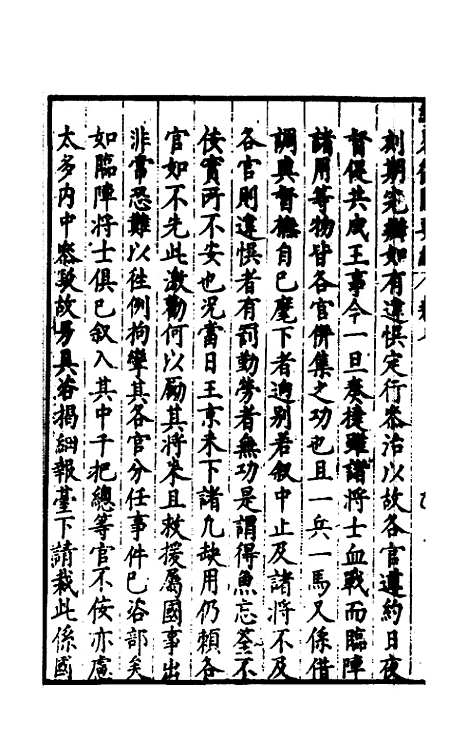 刻期完辦如有違悞定行叅治以故各官遵約日夜
督促共成王事今一旦奏捷雖諸將士血戰而臨陣
諸用等物皆各官倂集之功也且一兵一馬又係借
調與督撫自已麾下者逈别若叙中止及諸將不及
各官則違悞者有罰勤勞者無功是謂得魚忘筌不
佞實所不安也況當日王京未下諸凡缺用仍頼各
官如不先此激勸何以勵其將来且救援屬國事出
非常恐難以徃例拘攣其各官分任事件巳咨部矣
如臨陣將士俱巳叙入其中千把緫等官不佞亦慮
太多内中叅駁故另具咨揭細報臺下請裁此係國